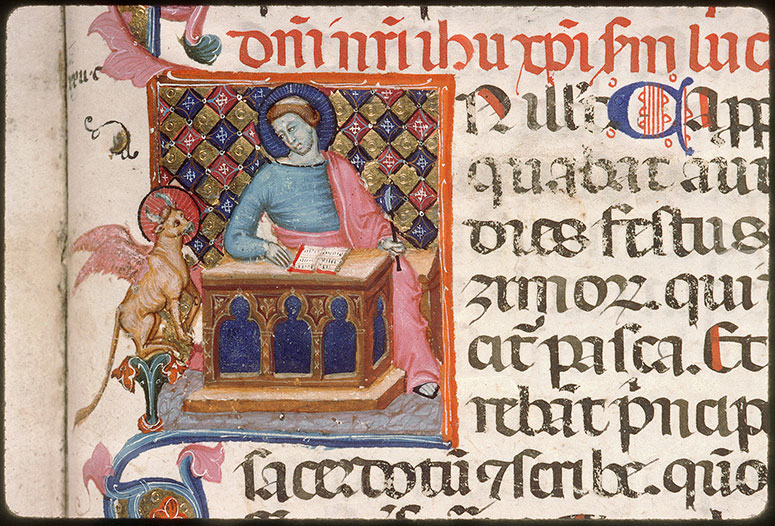 dñi nr̄i ihu xp̄i sm̄ luc
App
quabat aut
dies festus
zimoꝝ. qui
cit̄ pasca. Et
rebāt pncip
sacerdotū ⁊ scribe. quō